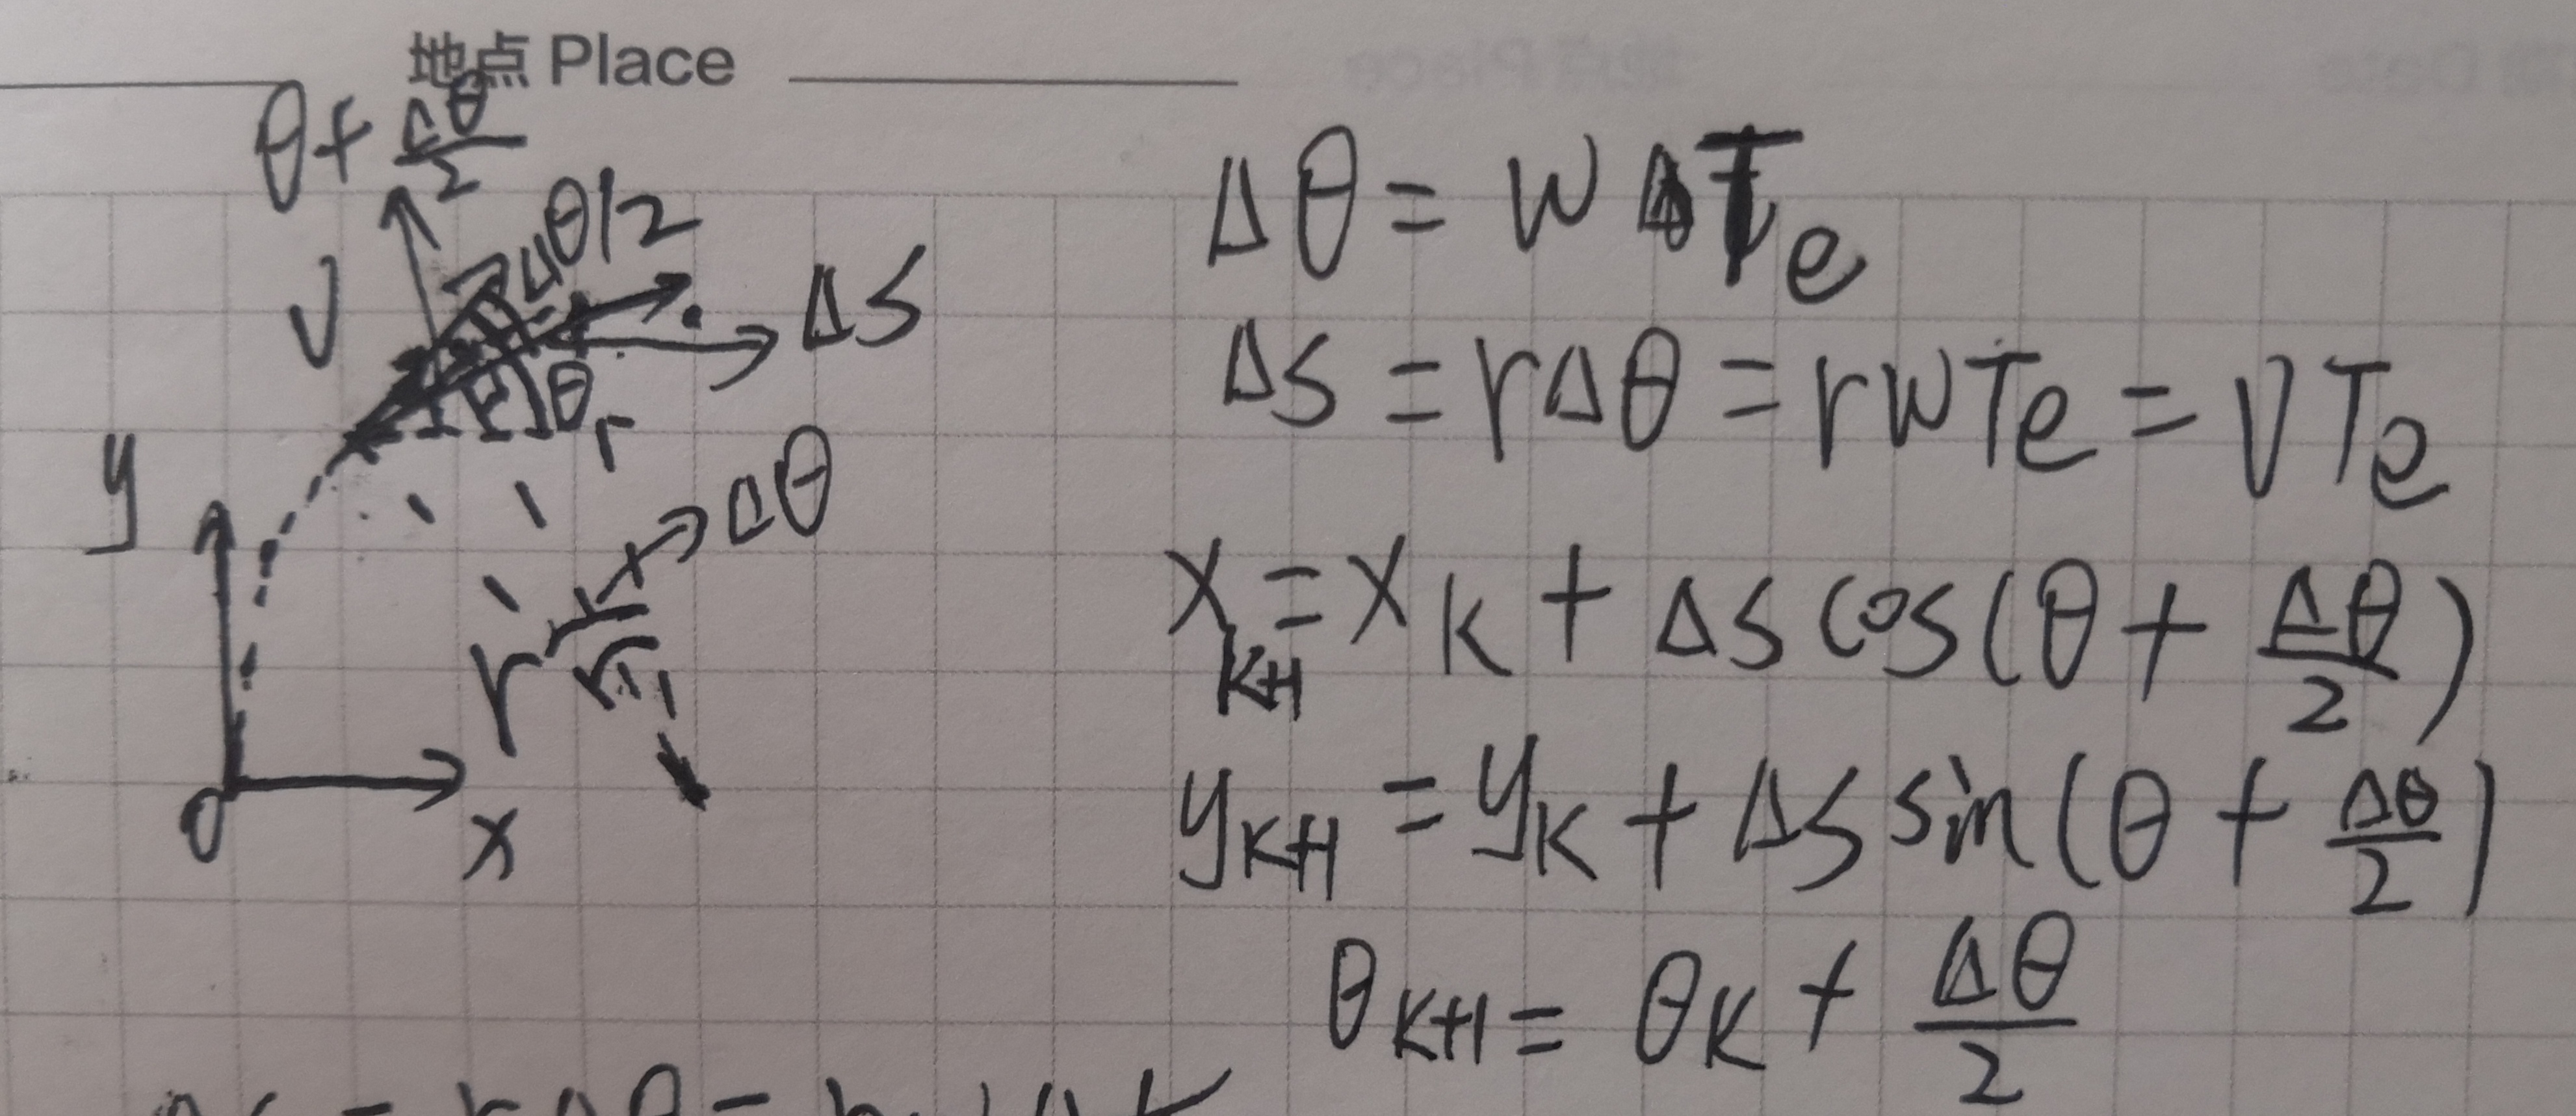 地点 Place
θ + Δθ/2
Δθ/2
V
ΔS
θ
r
y
Δθ
r
O
x
Δθ = w ΔTe
ΔS = rΔθ = rwTe = VTe
x_{K+1} = x_K + ΔS cos(θ + Δθ/2)
y_{K+1} = y_K + ΔS sin(θ + Δθ/2)
θ_{K+1} = θ_K + Δθ/2